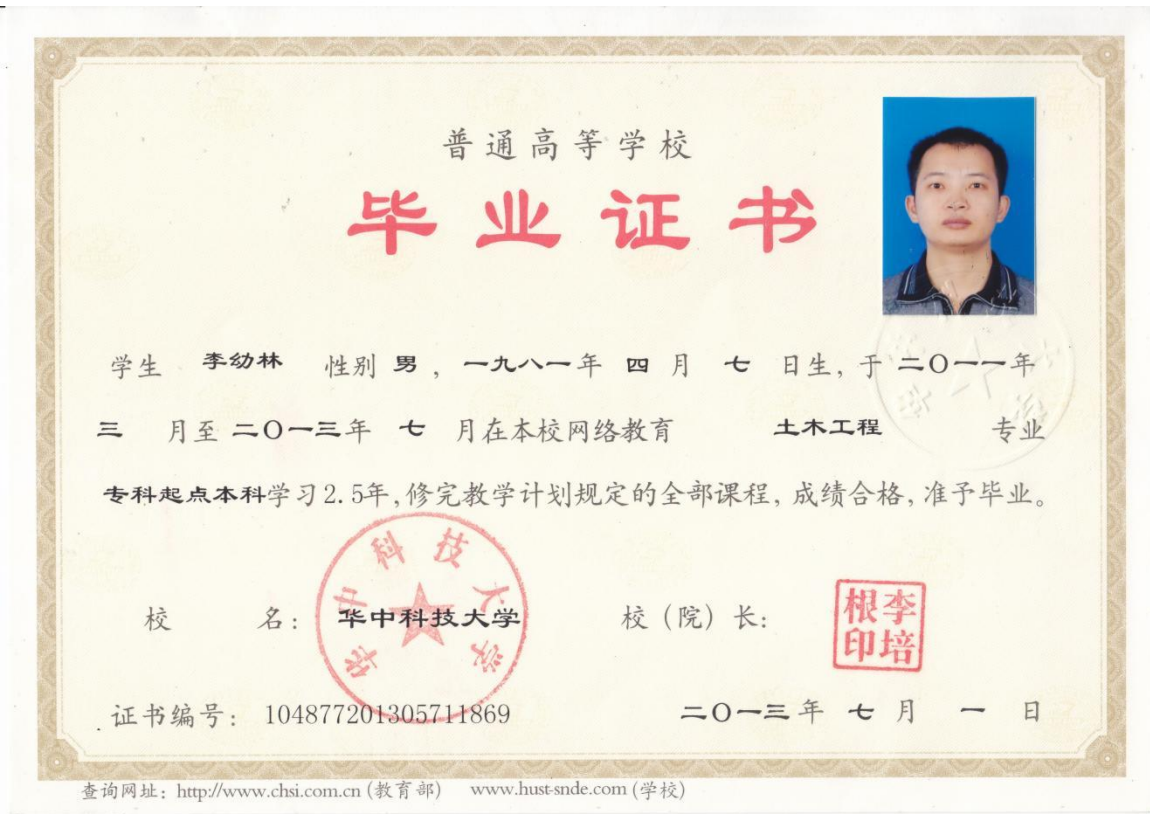 普通高等学校
毕业证书
学生 李幼林 性别 男 ，一九八一年 四 月 七 日生，于 二〇一一年
三 月至 二〇一三年 七 月在本校网络教育 土木工程 专业
专科起点本科学习2.5年，修完教学计划规定的全部课程，成绩合格，准予毕业。
华中科技大学
校 名： 华中科技大学 校（院）长：
李培根印
证书编号： 104877201305711869 二〇一三年 七 月 一 日
查询网址：http://www.chsi.com.cn (教育部) www.hust-snde.com (学校)